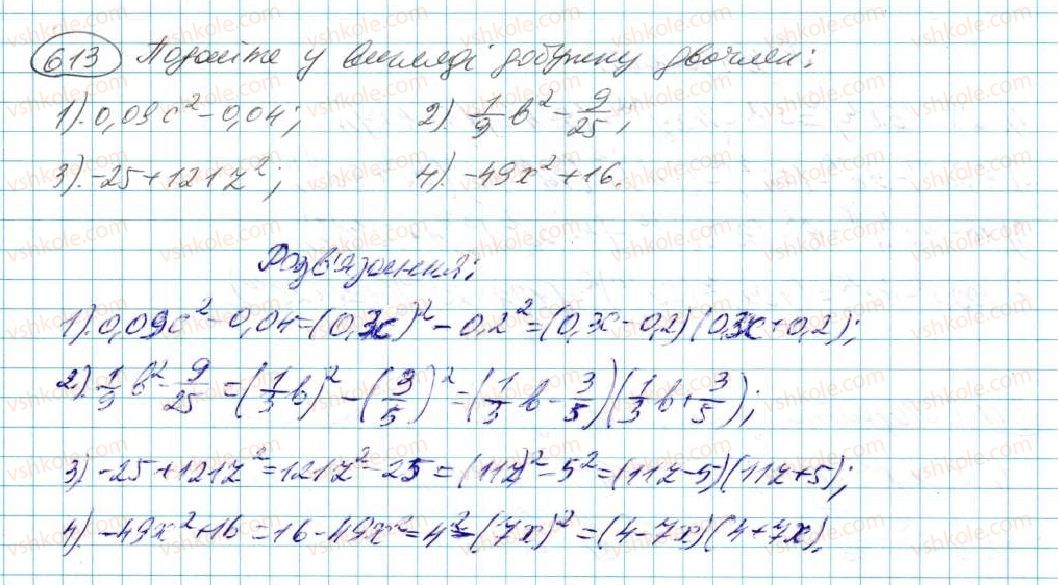 613 Подайте у вигляді добутку двочлен:
1). 0,09c² - 0,04; 2). 1/9 b² - 9/25;
3). -25 + 121z²; 4). -49x² + 16.
Розв'язання:
1). 0,09c² - 0,04 = (0,3c)² - 0,2² = (0,3c - 0,2)(0,3c + 0,2);
2). 1/9 b² - 9/25 = (1/3 b)² - (3/5)² = (1/3 b - 3/5)(1/3 b + 3/5);
3) -25 + 121z² = 121z² - 25 = (11z)² - 5² = (11z - 5)(11z + 5);
4). -49x² + 16 = 16 - 49x² = 4² - (7x)² = (4 - 7x)(4 + 7x).